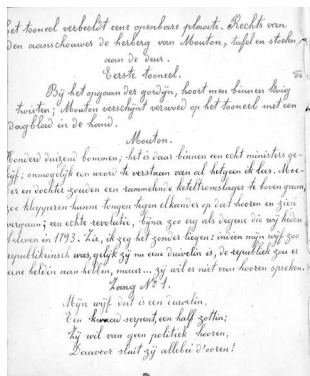 Het tooneel verbeeldt eene openbare plaats. Rechts van
den aanschouwer de herberg van Mouton, tafel en stoelen
aan de deur.
Eerste tooneel.
Bij het opgaan der gordijn, hoort men binnen hevig
twisten; Mouton verschijnt verwoed op het tooneel met een
dagblad in de hand.
Mouton.
Honderd duizend bommen; het is daar binnen een echt ministers ge-
kijf; onmogelijk een woord te verstaan van al hetgeen ik lees. Moe-
er en dochter zouden een rammelende keteltromslager te boven gaan,
zoo klepperen hunne tongen tegen elkander op dat hooren en zien
vergaan; een echte revolutie, bijna zoo erg als degene die wij hier
beleven in 1793. Zie, ik zeg het zonder liegen: indien mijn wijf zoo
republikeinsch was, gelijk zij nu eene duivelin is, de republiek zou er
eene heldin aan hebben, maar... zij wil er niet van hooren spreken.
Zang No 1.
Mijn wijf dat is een duivelin,
Een serpent, een half zottin;
Zij wil van geen politiek hooren,
Daarvoor sluit zij allebei d'ooren!